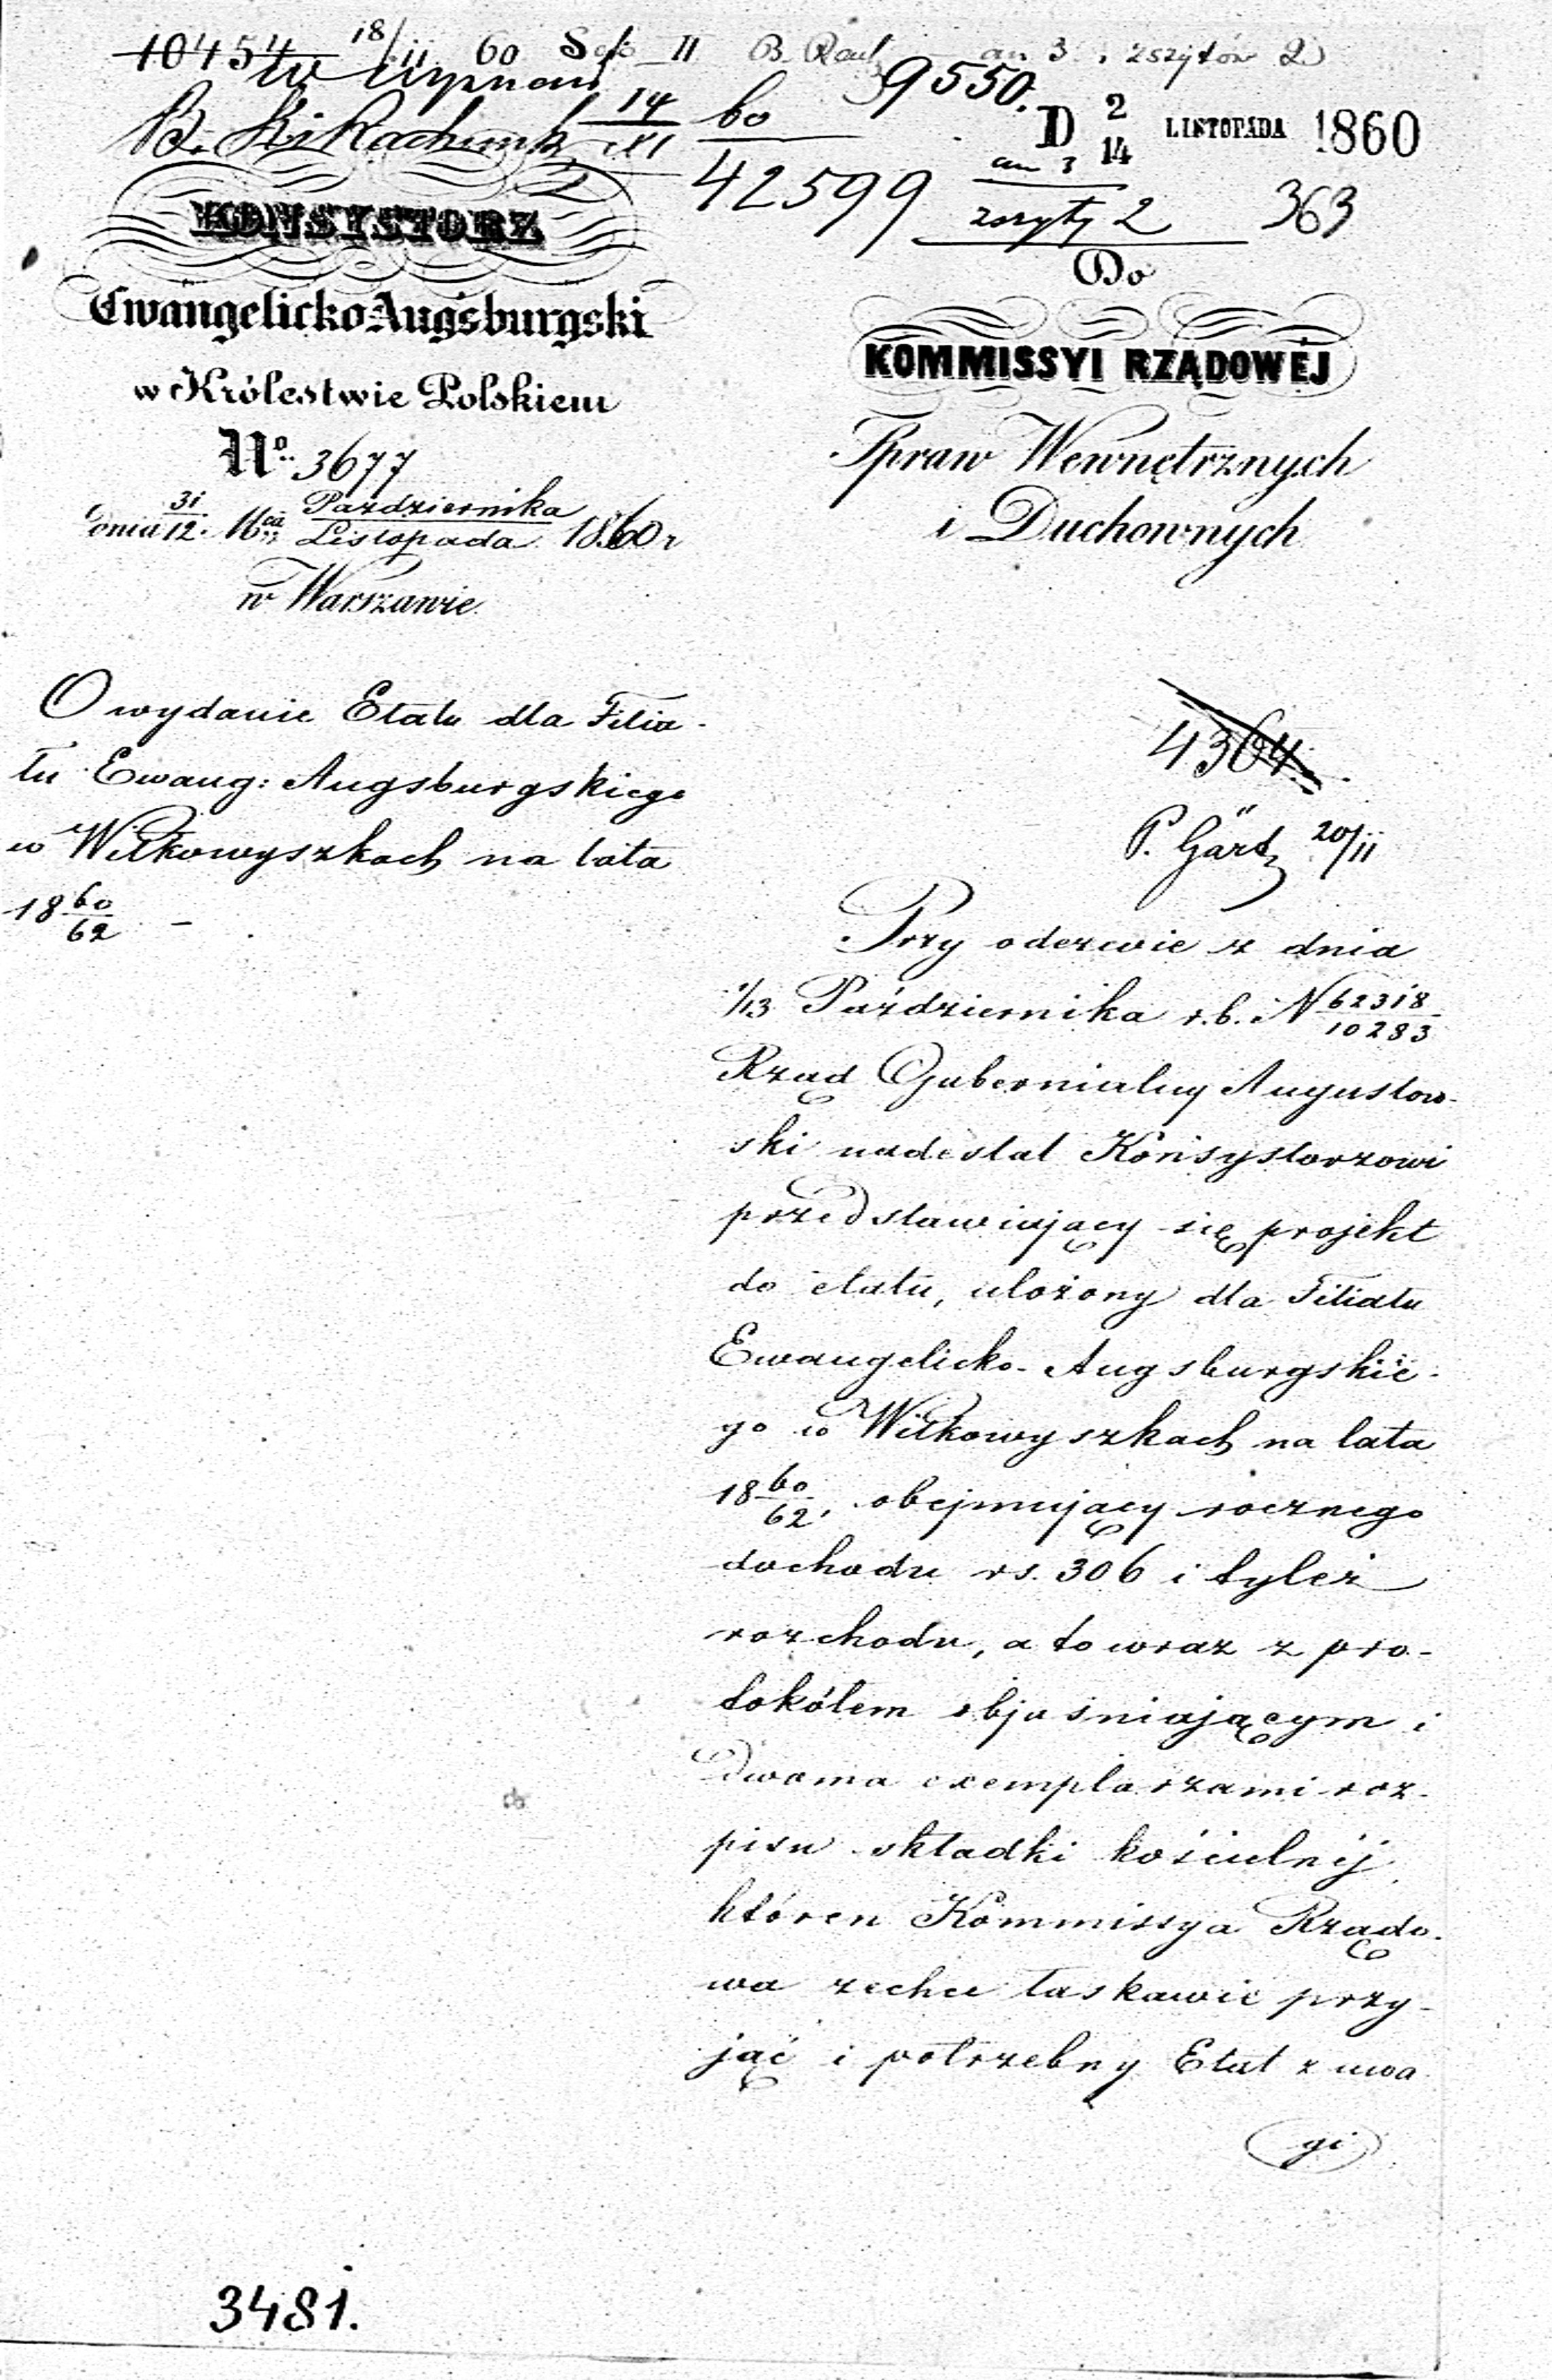 10454 18/11 60 II B. an 3 i zszytów 2
9550.
14/XI 60
D 2/14 LISTOPADA 1860
42599 an 3 zszyty 2 363
KONSYSTORZ
Ewangelicko Augsburgski
w Królestwie Polskiem
No. 3677
dnia 31/12. Mca Pazdziernika/Listopada 1860 r
w Warszawie.
Do
KOMMISSYI RZĄDOWÉJ
Spraw Wewnętrznych
i Duchownych
O wydanie Etatu dla Filia-
łu Ewang: Augsburgskiego
w Wiłkowyszkach na lata
18 60/62 -
4364
P. Gärtz 20/11
Przy odezwie z dnia
1/13 Października r.b. N 62318/10283
Rząd Gubernialny Augustow-
ski nadesłał Konsystorzowi
przedstawiający się projekt
do etatu, ułożony dla Filiału
Ewangelicko-Augsburgskie-
go w Wiłkowyszkach na lata
18 60/62, obejmujący rocznego
dochodu rs. 306 i tyleż
rozchodu, a to wraz z pro-
tokółem objaśniającym i
dwoma exemplarzami roz-
pisu składki kościelnéj,
któren Kommissya Rządo-
wa zechce łaskawie przy-
jąć i potrzebny Etat z uwa
gi
3481.